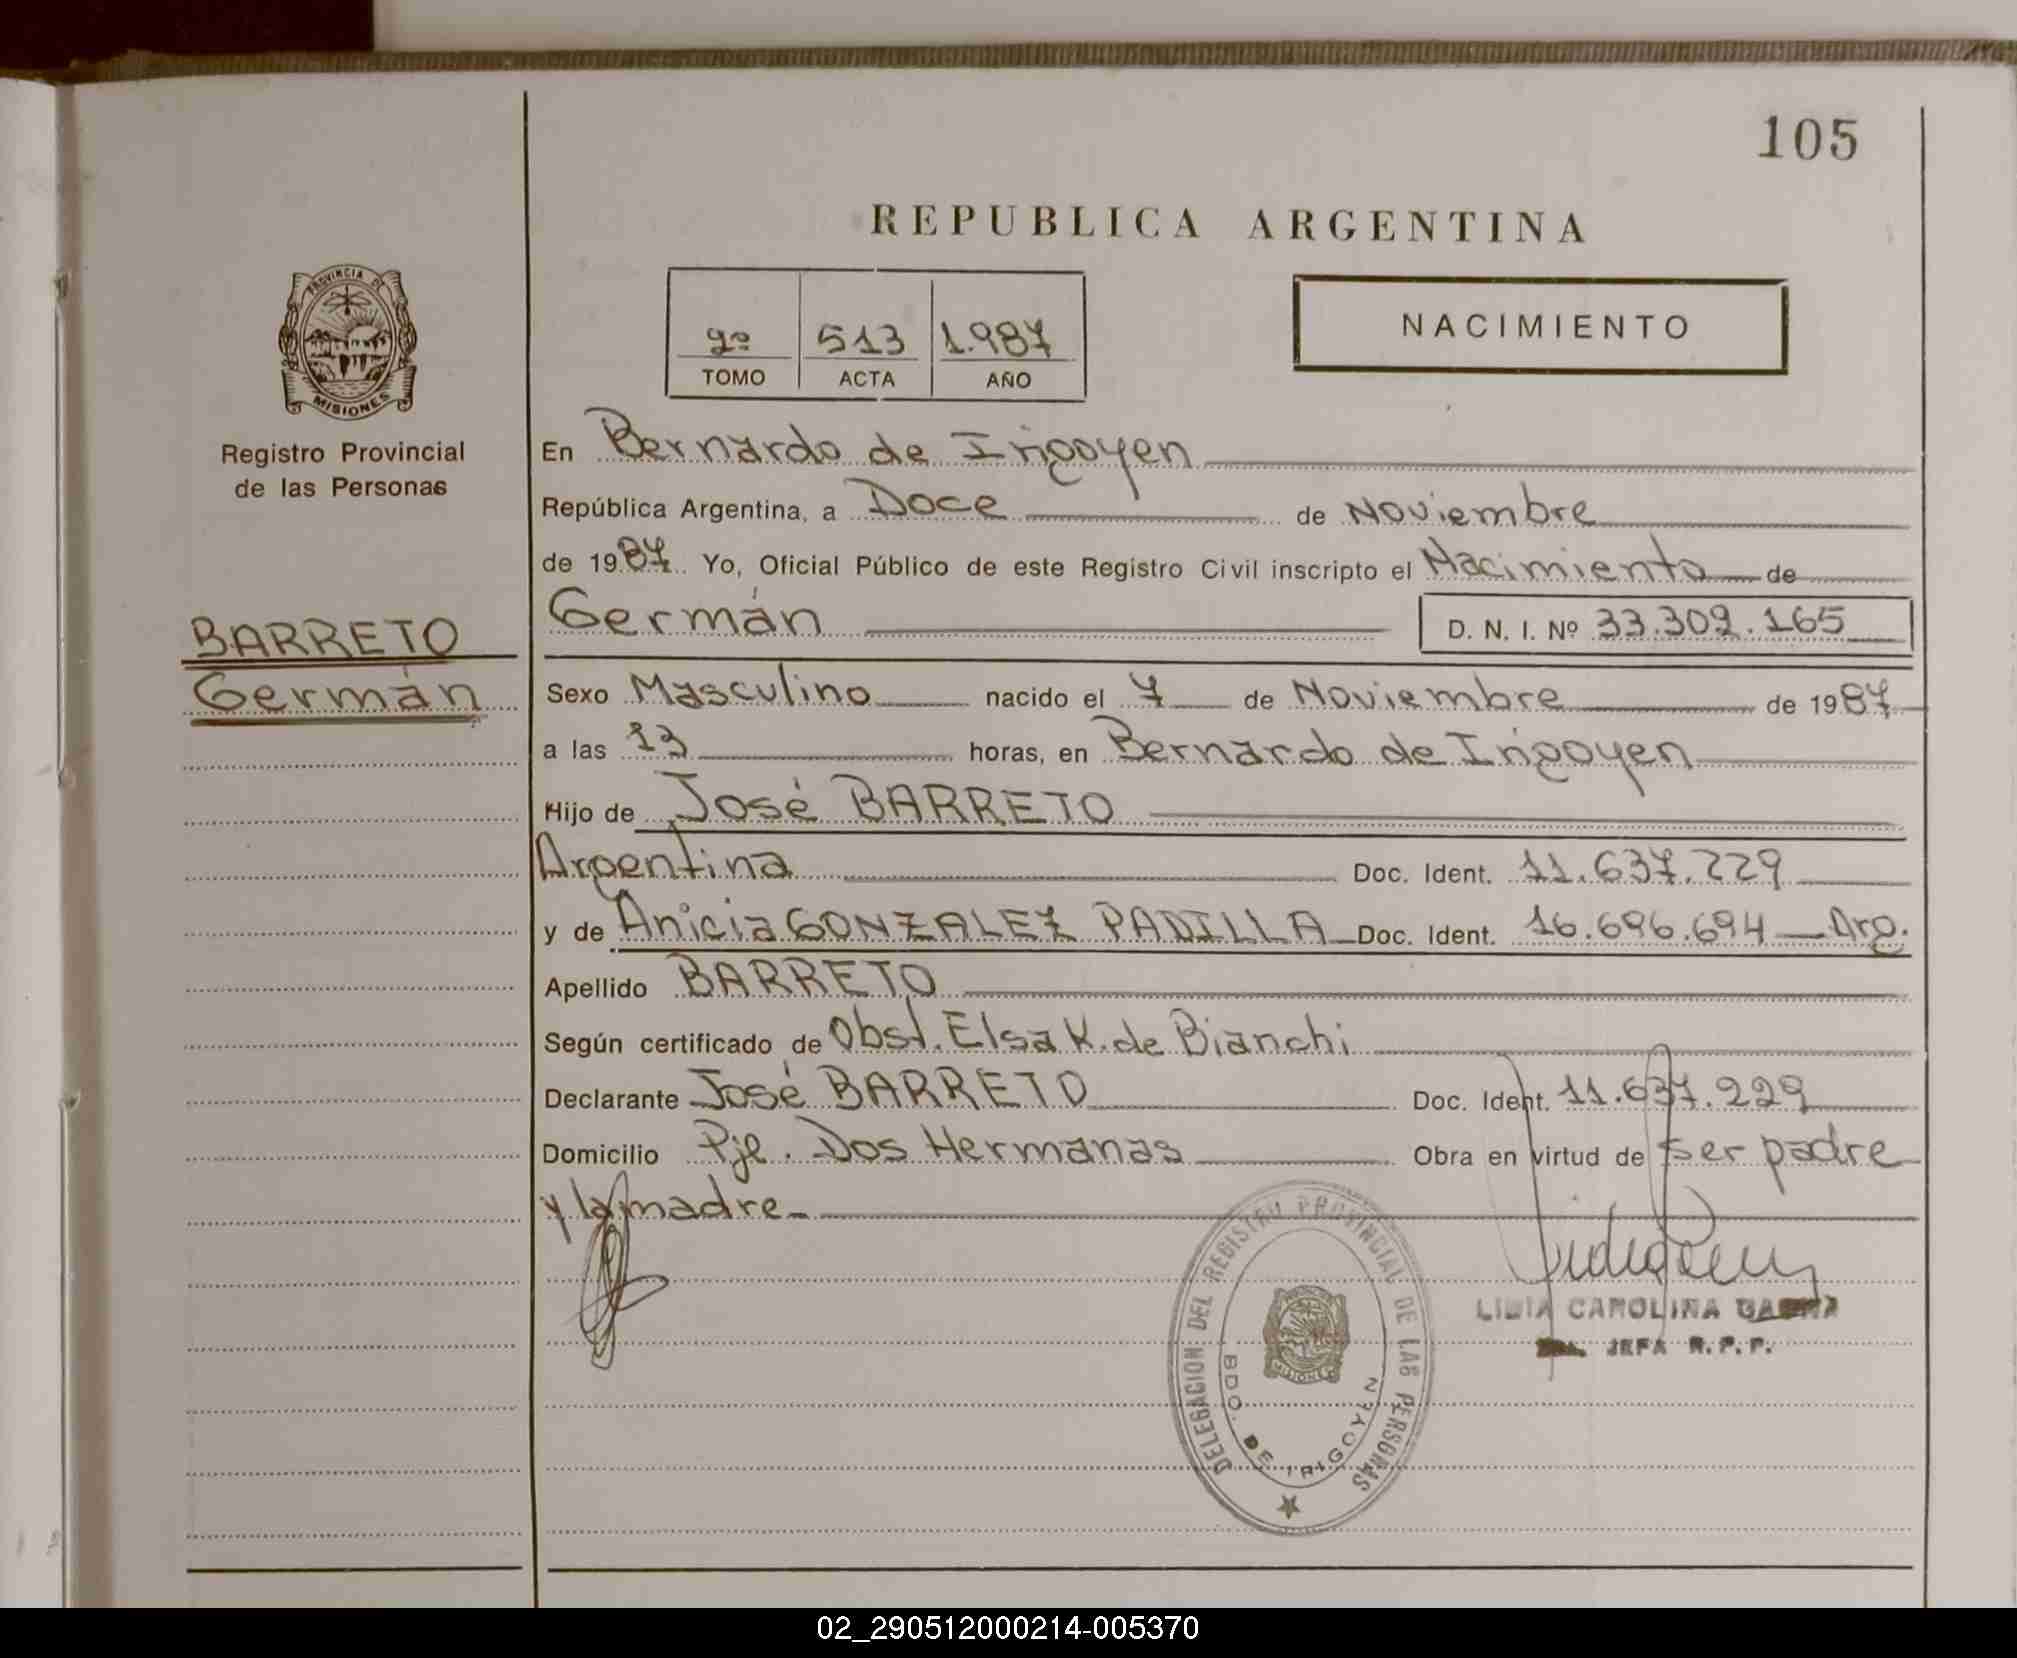 105
REPUBLICA ARGENTINA
PROVINCIA DE
MISIONES
Registro Provincial
de las Personas
2º 513 1.987
TOMO ACTA AÑO
NACIMIENTO
En Bernardo de Irigoyen
República Argentina, a Doce de Noviembre
de 1987 Yo, Oficial Público de este Registro Civil inscripto el Nacimiento de
BARRETO
Germán
Germán D. N. I. Nº 33.309.165
Sexo Masculino nacido el 7 de Noviembre de 1987
a las 13 horas, en Bernardo de Irigoyen
Hijo de José BARRETO
Argentina Doc. Ident. 11.637.229
y de Anicia GONZALEZ PADILLA Doc. Ident. 16.696.694 Arg.
Apellido BARRETO
Según certificado de Obst. Elsa K. de Bianchi
Declarante José BARRETO Doc. Ident. 11.637.229
Domicilio Pje. Dos Hermanas Obra en virtud de ser padre
y la madre
DELEGACION DEL REGISTRO PROVINCIAL DE LAS PERSONAS
BDO. DE IRIGOYEN
MISIONES
CAROLINA
JEFA R. P. P.
02_290512000214-005370